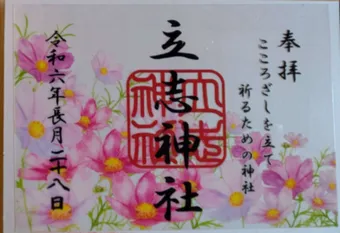 奉拝
こころざしを立て
祈るための神社
立志神社
立志神社
令和六年長月二十八日